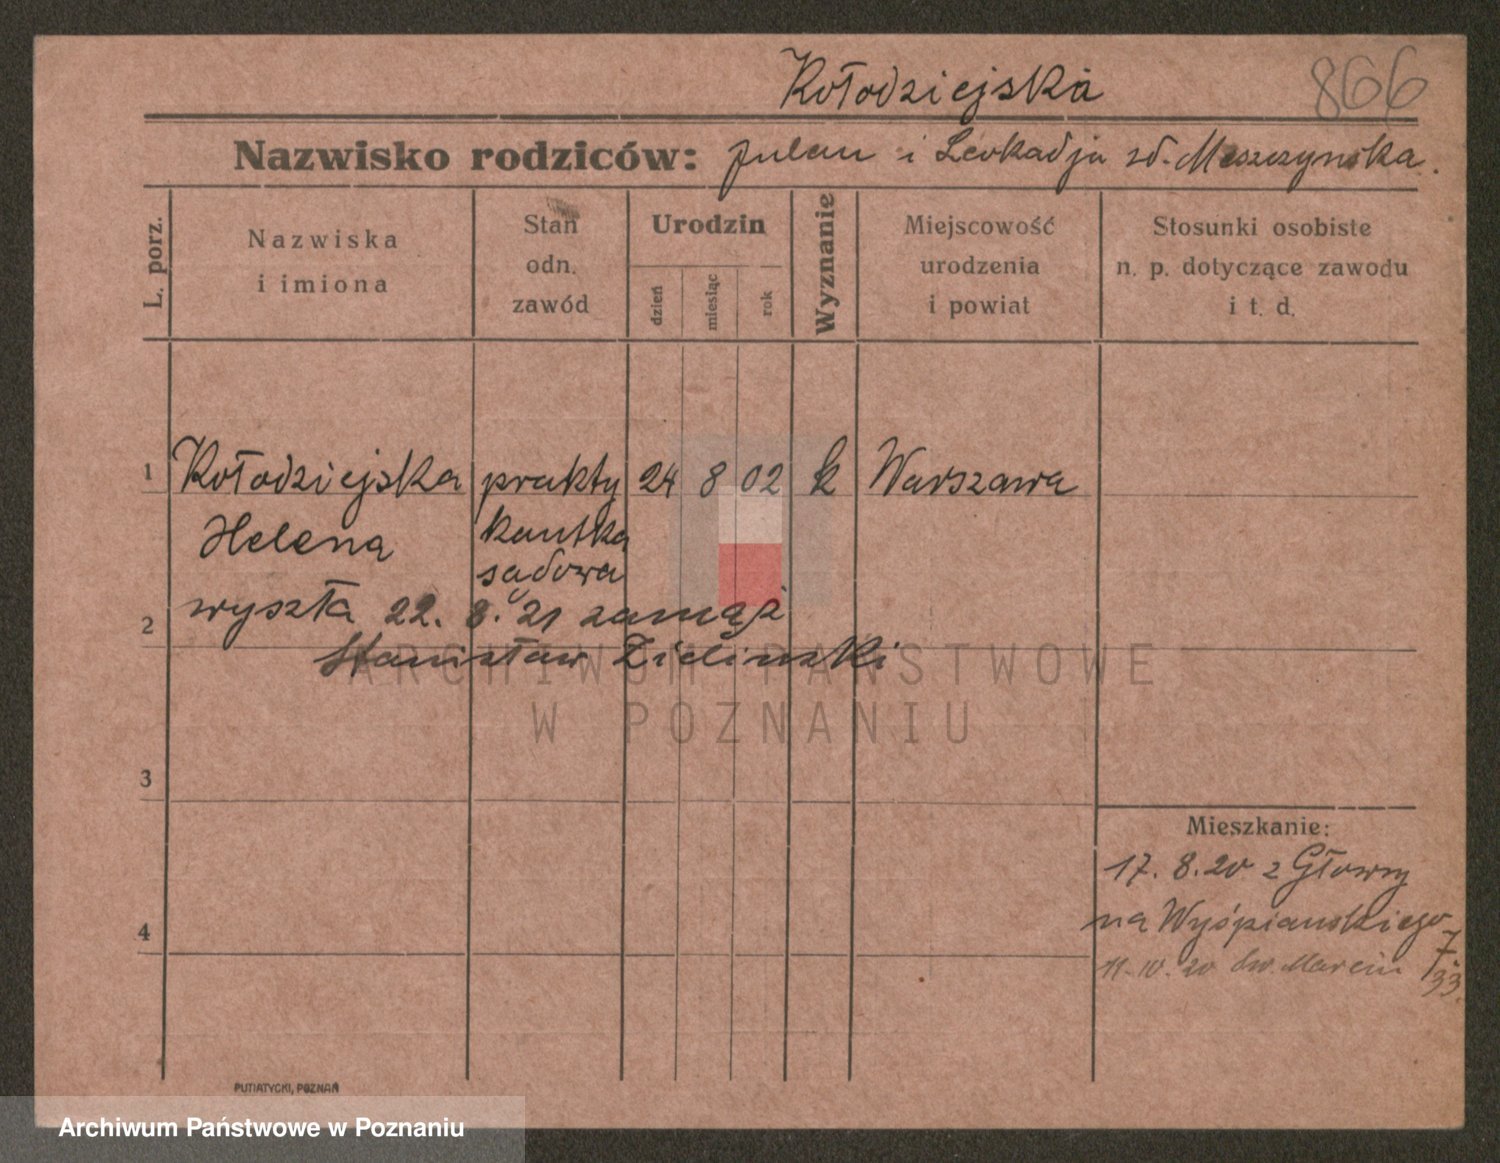 Kołodziejska
866
Nazwisko rodziców: Julian i Leokadja zd. Meszczynska.
L. porz.
Nazwiska
i imiona
Stan
odn.
zawód
Urodzin
dzień
miesiąc
rok
Wyznanie
Miejscowość
urodzenia
i powiat
Stosunki osobiste
n. p. dotyczące zawodu
i t. d.
1 Kołodziejska prakty 24 8 02 k Warszawa
Helena kantka
sądowa
2 wyszła 22. 8. 21 zamąż
Stanisław Zielinski
ARCHIWUM PAŃSTWOWE
W POZNANIU
3
Mieszkanie:
17. 8. 20 z Głowny
na Wyśpianskiego 7
4
11. 10. 20 Św. Marcin 33.
PUTIATYCKI, POZNAŃ
Archiwum Państwowe w Poznaniu